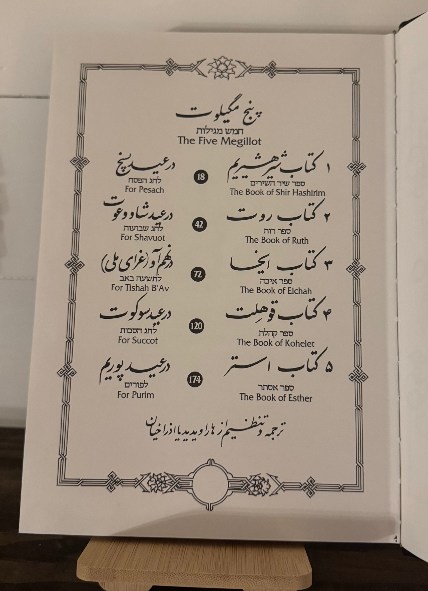 پنج مگیلوت
חמש מגילות
The Five Megillot
۱ کتاب شیر هشیریم
ספר שיר השירים
The Book of Shir Hashirim
18
در عید پسح
לחג הפסח
For Pesach
۲ کتاب روت
ספר רות
The Book of Ruth
42
در عید شاووعوت
לחג שבועות
For Shavuot
۳ کتاب ایخا
ספר איכה
The Book of Eichah
72
در نهم آو (عزای ملی)
לתשעה באב
For Tishah B'Av
۴ کتاب قوهلت
ספר קהלת
The Book of Kohelet
120
در عید سوکوت
לחג הסכות
For Succot
۵ کتاب استر
ספר אסתר
The Book of Esther
174
در عید پوریم
לפורים
For Purim
ترجمه و تنظیم از هاراو یدیدیا اذراحیان